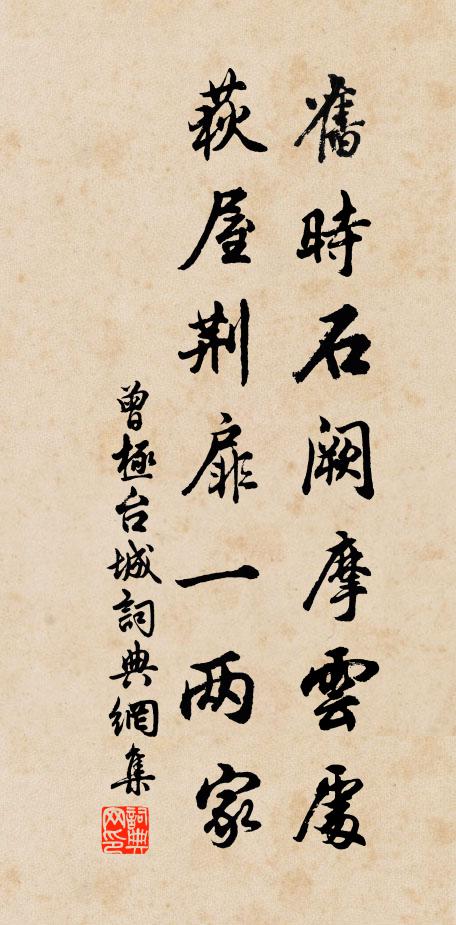 舊時石闕摩雲處
荻屋荆扉一两家
曾極台城詞典網集
詞典網印